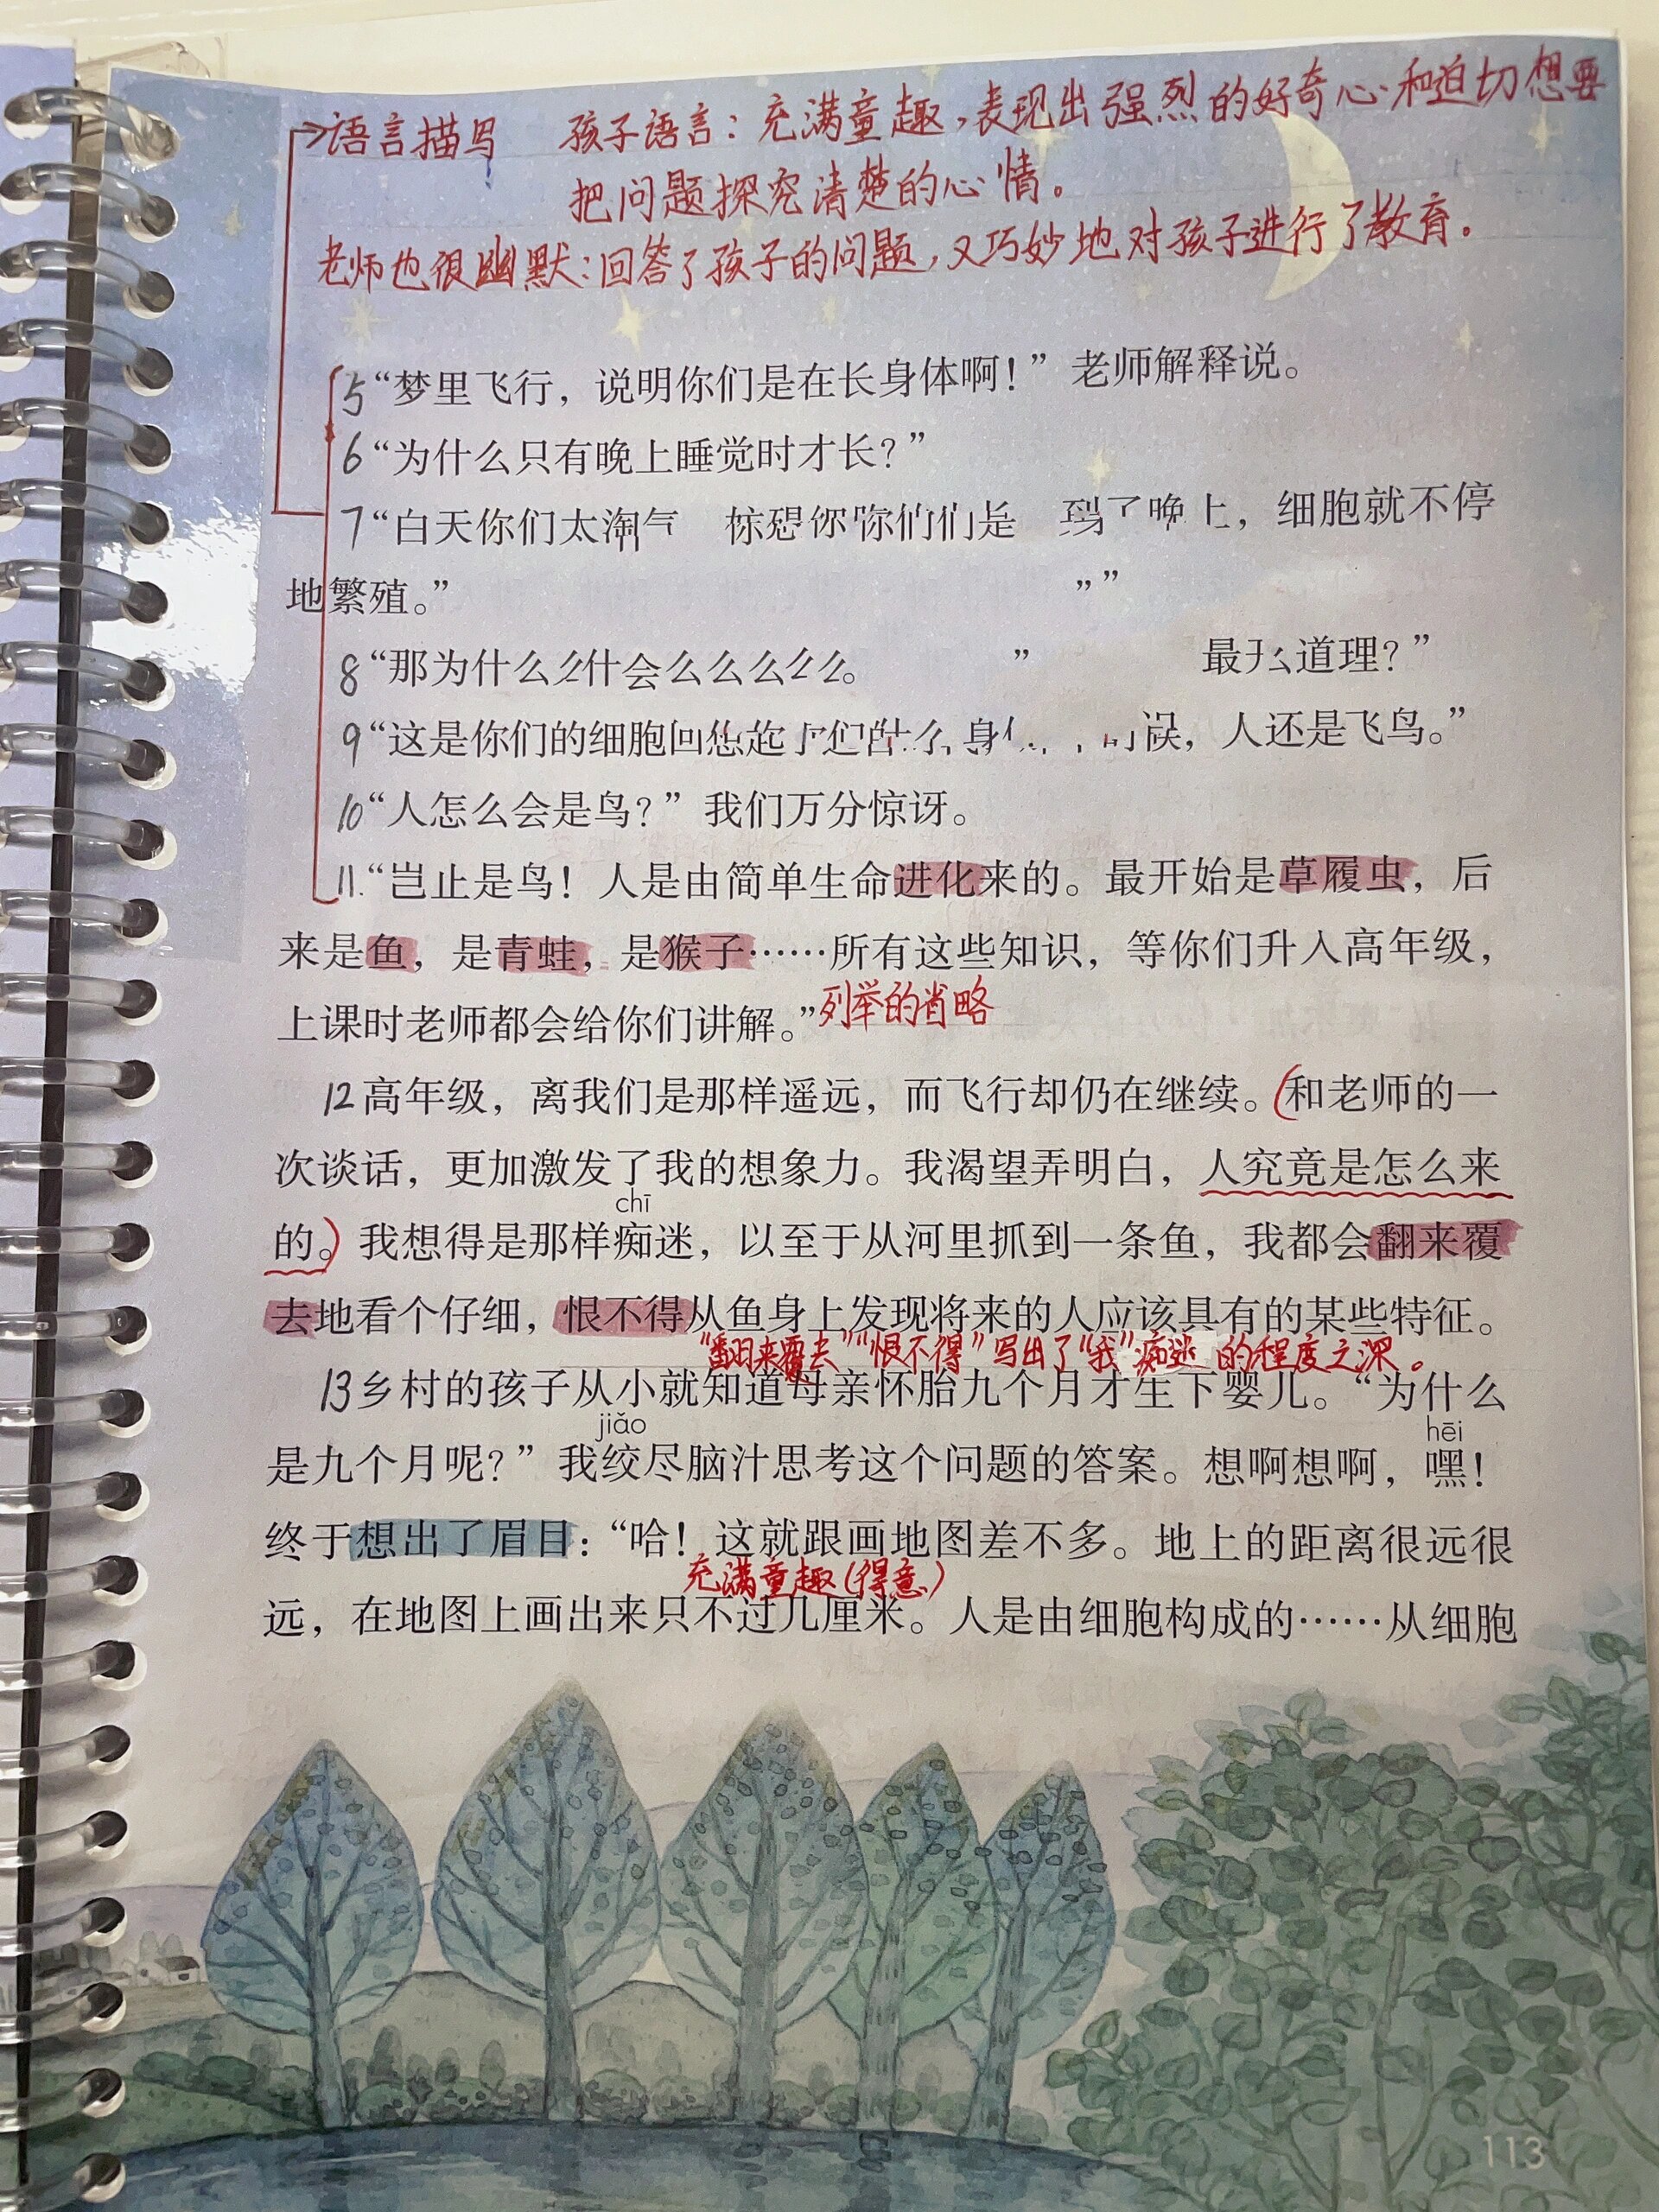 语言描写 孩子语言：充满童趣，表现出强烈的好奇心和迫切想要
把问题探究清楚的心情。
老师也很幽默：回答了孩子的问题，又巧妙地对孩子进行了教育。
5“梦里飞行，说明你们是在长身体啊！”老师解释说。
6“为什么只有晚上睡觉时才长？”
7“白天你们太淘气 晚上，细胞就不停
地繁殖。”
8“那为什么 道理？”
9“这是你们的细胞 身 误，人还是飞鸟。”
10“人怎么会是鸟？”我们万分惊讶。
11.“岂止是鸟！人是由简单生命进化来的。最开始是草履虫，后
来是鱼，是青蛙，是猴子……所有这些知识，等你们升入高年级，
上课时老师都会给你们讲解。”列举的省略
12高年级，离我们是那样遥远，而飞行却仍在继续。(和老师的一
次谈话，更加激发了我的想象力。我渴望弄明白，人究竟是怎么来
chī
的。)我想得是那样痴迷，以至于从河里抓到一条鱼，我都会翻来覆
去地看个仔细，恨不得从鱼身上发现将来的人应该具有的某些特征。
“翻来覆去”“恨不得”写出了“我”痴迷的程度之深。
13乡村的孩子从小就知道母亲怀胎九个月才生下婴儿。“为什么
jiǎo hēi
是九个月呢？”我绞尽脑汁思考这个问题的答案。想啊想啊，嘿！
终于想出了眉目：“哈！这就跟画地图差不多。地上的距离很远很
充满童趣(得意)
远，在地图上画出来只不过几厘米。人是由细胞构成的……从细胞
113